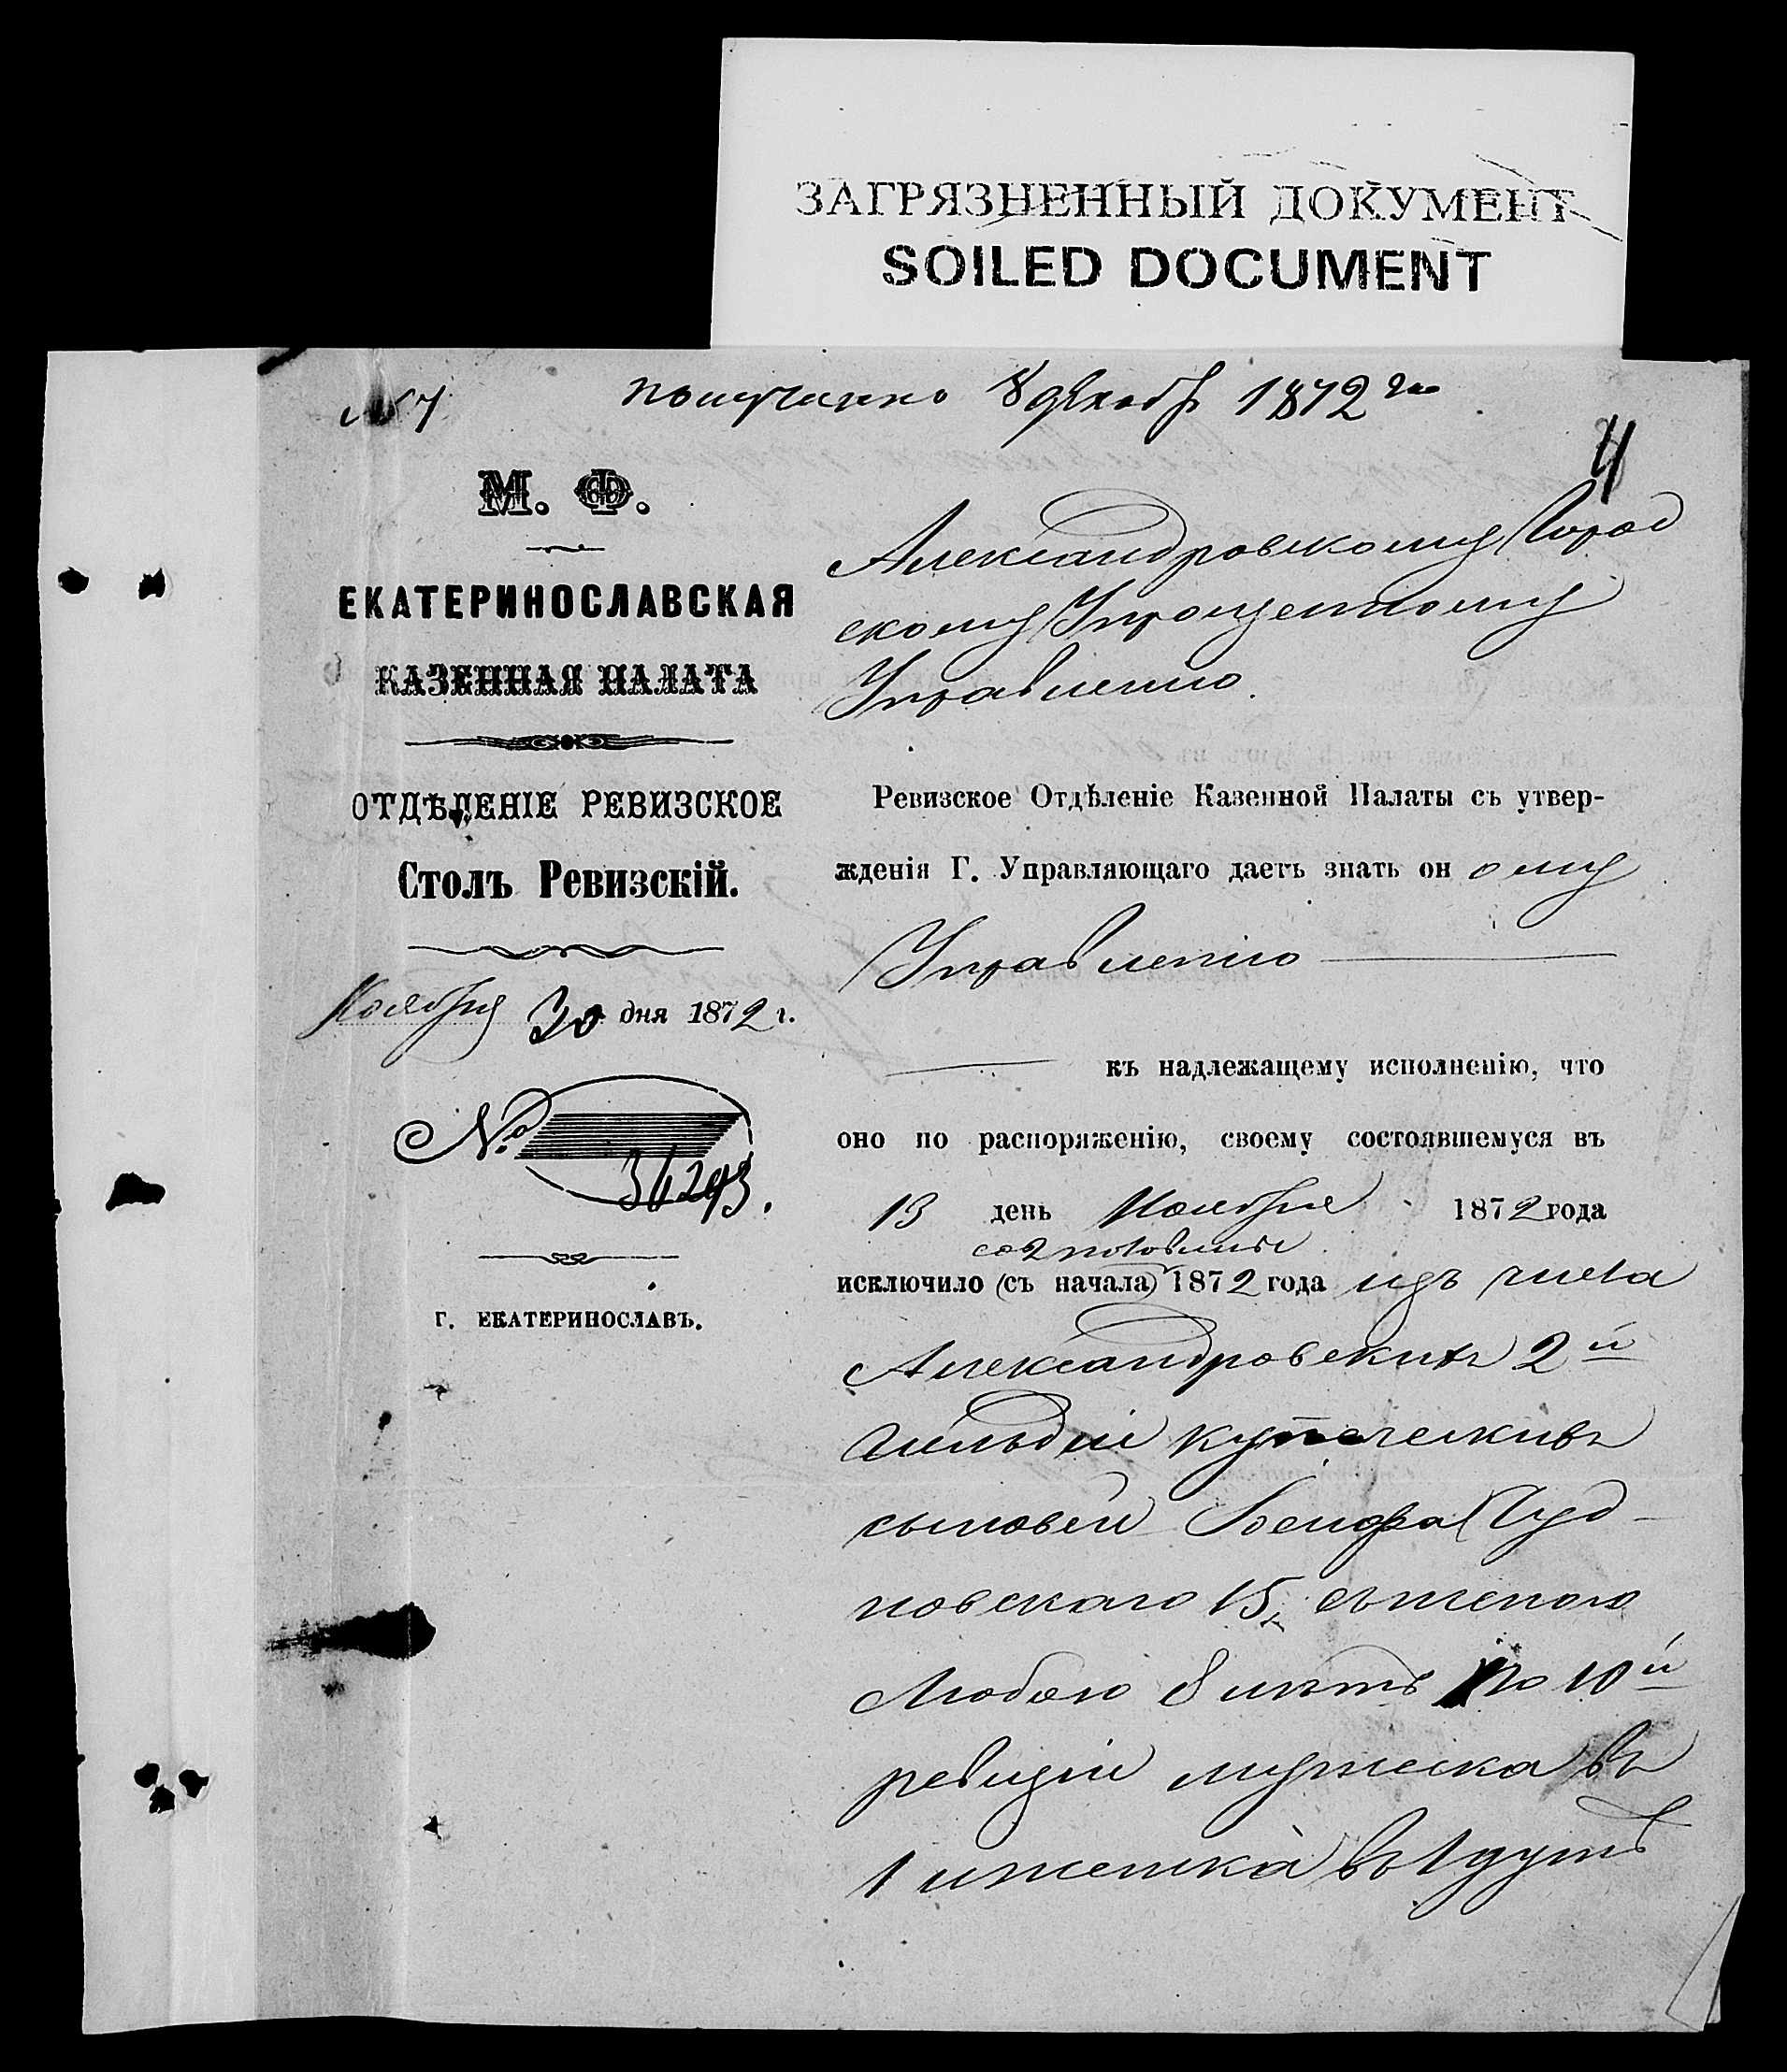 ЗАГРЯЗНЕННЫЙ ДОКУМЕНТ
SOILED DOCUMENT
получено 8 декабр 1872 го
4
М. Ф.
ЕКАТЕРИНОСЛАВСКАЯ
КАЗЕННАЯ ПАЛАТА
ОТДѢЛЕНІЕ РЕВИЗСКОЕ
Столъ Ревизскій.
Ноября 30 дня 1872 г.
№
36293.
г. ЕКАТЕРИНОСЛАВЪ.
Александровскому Город
скому Упрощенному
Управленію.
Ревизское Отдѣленіе Казенной Палаты съ утвер-
жденія Г. Управляющаго даетъ знать оному
Управленію
къ надлежащему исполненію, что
оно по распоряженію, своему состоявшемуся въ
13 день Ноября 1872 года
со 2 половины
исключило (съ начала) 1872 года изъ числа
Александровскихъ 2й
гильдіи купеческихъ
сыновей Чуд-
новскаго 15, съ женою
Любою 8 лѣтъ по 10й
ревизіи мужеска въ
1 и женска въ 1 душѣ